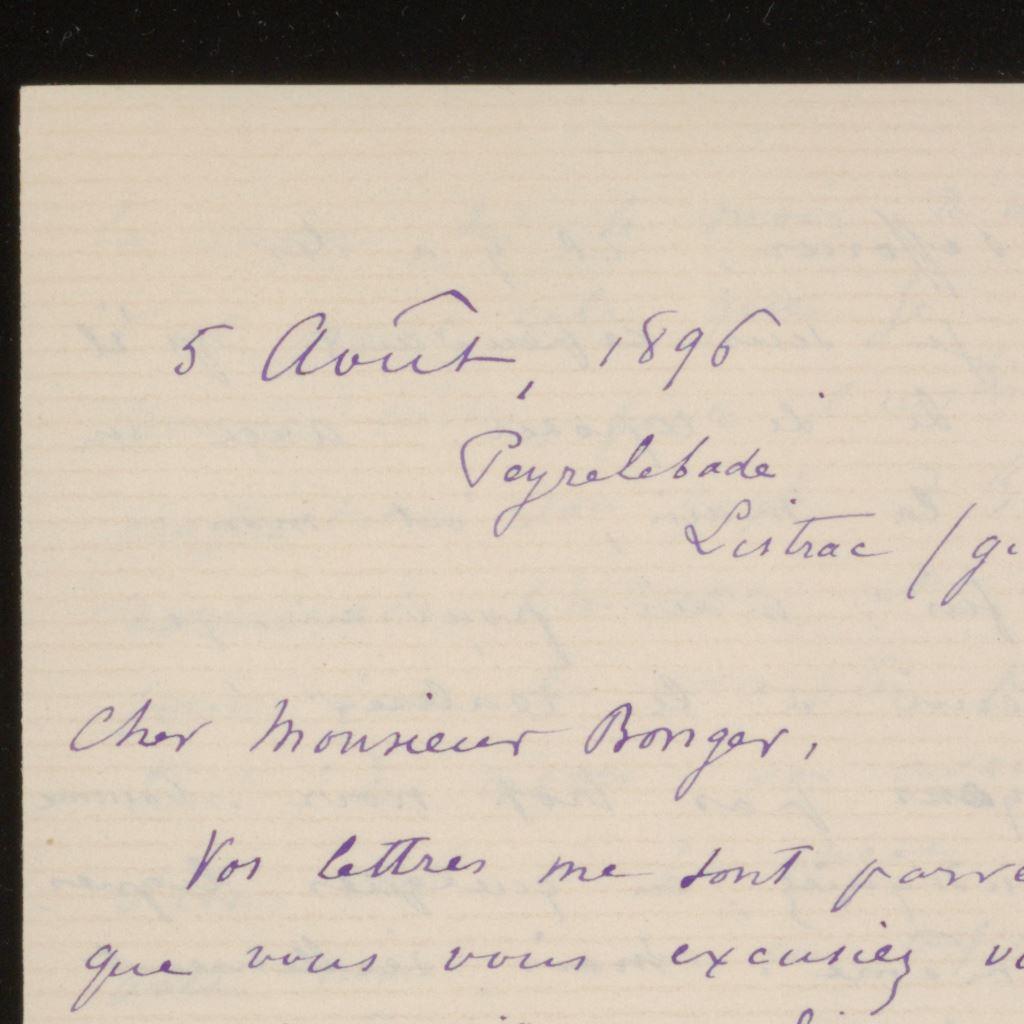 5 Août, 1896
Peyrelebade
Listrac (gi
Cher Monsieur Bonger,
Vos lettres me sont parve
que vous vous excusiez vo